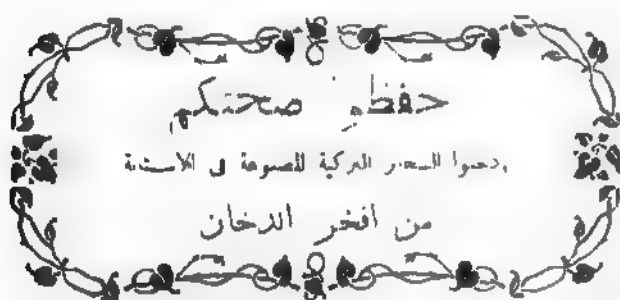 حفظو صحتكم
ودخنوا السجاير التركية المصنوعة في الاستانة
من أفخر الدخان